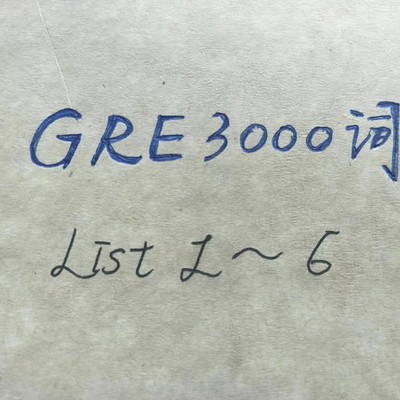 GRE 3000词
List 1～6